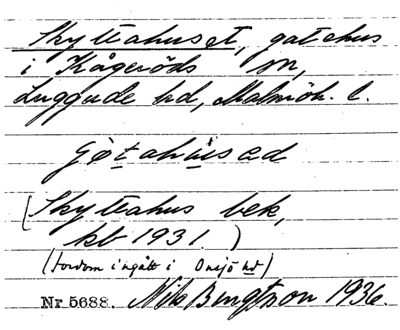 Skytteahuset, gatehus
i Kågeröds sn,
Luggude hd, Malmöh. l.
(Skytteahus bek,
kb 1931.)
(fordom ingått i Onsjö hd)
Nr. 5688. Nils Bengtsson 1936.